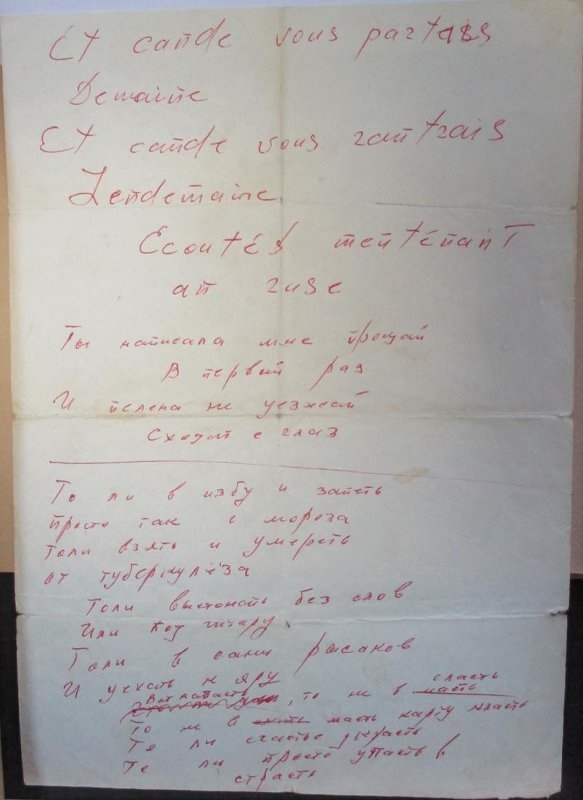 Et cande vous partais
Demaine
Et cande vous rantrais
Lendemaine
Ecoutés mentenant
an ruse
Ты написала мне прощай
В первый раз
И пелена не уезжай
Сходит с глаз
То ли в избу и запеть
просто так с мороза
Толи взять и умереть
от туберкулёза
Толи выстонать без слов
Или под гитару
Толи в сани рысаков
И уехать к яру
Вот напасть, то не в сласть
То не в масть карту класть
То ли счастье украсть
То ли просто упасть в
страсть